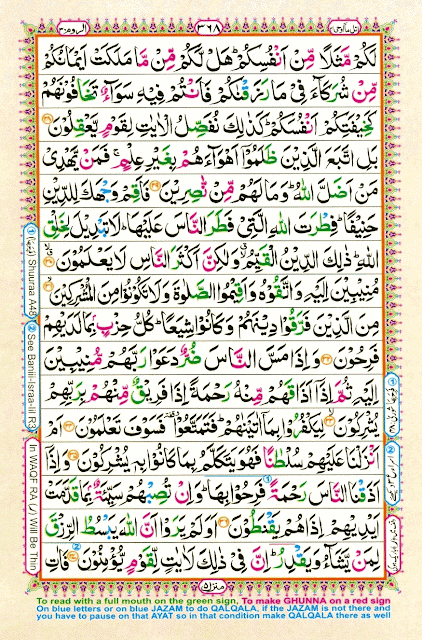 اتل ما اوحی
٣٦٨
الروم ٣٠
لَكُمْ مَّثَلًا مِّنْ اَنْفُسِكُمْ ؕ هَلْ لَّكُمْ مِّنْ مَّا مَلَكَتْ اَيْمَانُكُمْ
مِّنْ شُرَكَآءَ فِیْ مَا رَزَقْنٰكُمْ فَاَنْتُمْ فِيْهِ سَوَآءٌ تَخَافُوْنَهُمْ
كَخِيْفَتِكُمْ اَنْفُسَكُمْ ؕ كَذٰلِكَ نُفَصِّلُ الْاٰيٰتِ لِقَوْمٍ يَّعْقِلُوْنَ ۝٢٨
بَلِ اتَّبَعَ الَّذِيْنَ ظَلَمُوْٓا اَهْوَآءَهُمْ بِغَيْرِ عِلْمٍ ۚ فَمَنْ يَّهْدِیْ
مَنْ اَضَلَّ اللّٰهُ ؕ وَمَا لَهُمْ مِّنْ نّٰصِرِيْنَ ۝٢٩ فَاَقِمْ وَجْهَكَ لِلدِّيْنِ
حَنِيْفًا ؕ فِطْرَتَ اللّٰهِ الَّتِیْ فَطَرَ النَّاسَ عَلَيْهَا ؕ لَا تَبْدِيْلَ لِخَلْقِ
اللّٰهِ ؕ ذٰلِكَ الدِّيْنُ الْقَيِّمُ ۙ وَلٰكِنَّ اَكْثَرَ النَّاسِ لَا يَعْلَمُوْنَ ۝٣٠
مُنِيْبِيْنَ اِلَيْهِ وَاتَّقُوْهُ وَاَقِيْمُوا الصَّلٰوةَ وَلَا تَكُوْنُوْا مِنَ الْمُشْرِكِيْنَ ۝٣١
مِنَ الَّذِيْنَ فَرَّقُوْا دِيْنَهُمْ وَكَانُوْا شِيَعًا ؕ كُلُّ حِزْبٍۭ بِمَا لَدَيْهِمْ
فَرِحُوْنَ ۝٣٢ وَاِذَا مَسَّ النَّاسَ ضُرٌّ دَعَوْا رَبَّهُمْ مُّنِيْبِيْنَ
اِلَيْهِ ثُمَّ اِذَآ اَذَاقَهُمْ مِّنْهُ رَحْمَةً اِذَا فَرِيْقٌ مِّنْهُمْ بِرَبِّهِمْ
يُشْرِكُوْنَ ۝٣٣ لِيَكْفُرُوْا بِمَآ اٰتَيْنٰهُمْ ؕ فَتَمَتَّعُوْا ۥ فَسَوْفَ تَعْلَمُوْنَ ۝٣٤ اَمْ
اَنْزَلْنَا عَلَيْهِمْ سُلْطٰنًا فَهُوَ يَتَكَلَّمُ بِمَا كَانُوْا بِهٖ يُشْرِكُوْنَ ۝٣٥ وَاِذَآ
اَذَقْنَا النَّاسَ رَحْمَةً فَرِحُوْا بِهَا ؕ وَاِنْ تُصِبْهُمْ سَيِّئَةٌۢ بِمَا قَدَّمَتْ
اَيْدِيْهِمْ اِذَا هُمْ يَقْنَطُوْنَ ۝٣٦ اَوَلَمْ يَرَوْا اَنَّ اللّٰهَ يَبْسُطُ الرِّزْقَ
لِمَنْ يَّشَآءُ وَيَقْدِرُ ؕ اِنَّ فِیْ ذٰلِكَ لَاٰيٰتٍ لِّقَوْمٍ يُّؤْمِنُوْنَ ۝٣٧ فَاٰتِ
منزل ٥
Shuuraa A48
② See Baniii-Israa-iil R3
In WAQF RA (ر) Will Be Thin
To read with a full mouth on the green sign, To make GHUNNA on a red sign
On blue letters or on blue JAZAM to do QALQALA, if the JAZAM is not there and
you have to pause on that AYAT so in that condition make QALQALA there as well